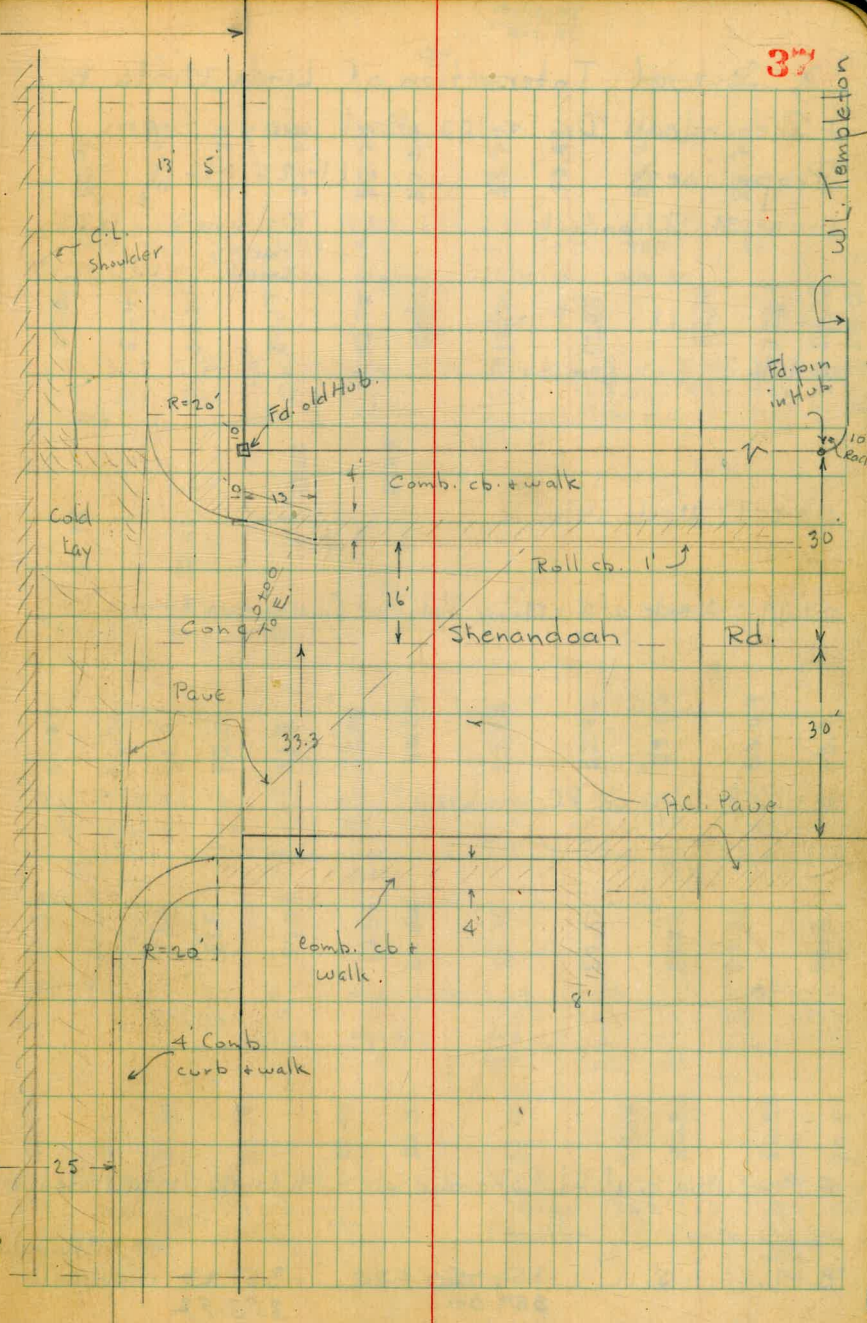 37
W.L. Templeton
13'
5'
C.L.
Shoulder
Fd. pin
in Hub
R=20'
Fd. old Hub.
10'
10'
10'
13'
4'
Comb. cb. + walk
Cold
Lay
Roll cb. 1'
30'
16'
0+00
Conc
Shenandoah Rd.
Pave
33.3
30'
A.C. Pave
4'
R=20'
Comb. cb +
walk.
8'
4' Comb
curb + walk
25